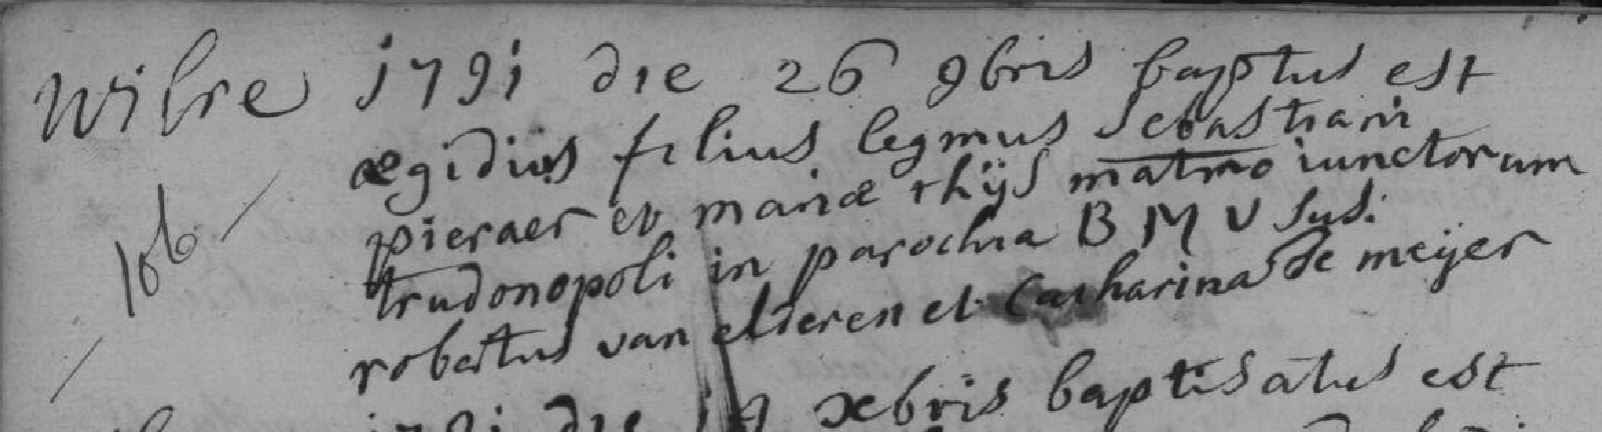 wilre 1791 die 26 9bris baptus est
ægidius filius legmus Sebastiani
pieraer et mariæ thijs matrio iunctorum
106
trudonopoli in parochia B M V sus:
robertus van elderen et Catharina de meijer
1791 die 19 xbris baptisatus est